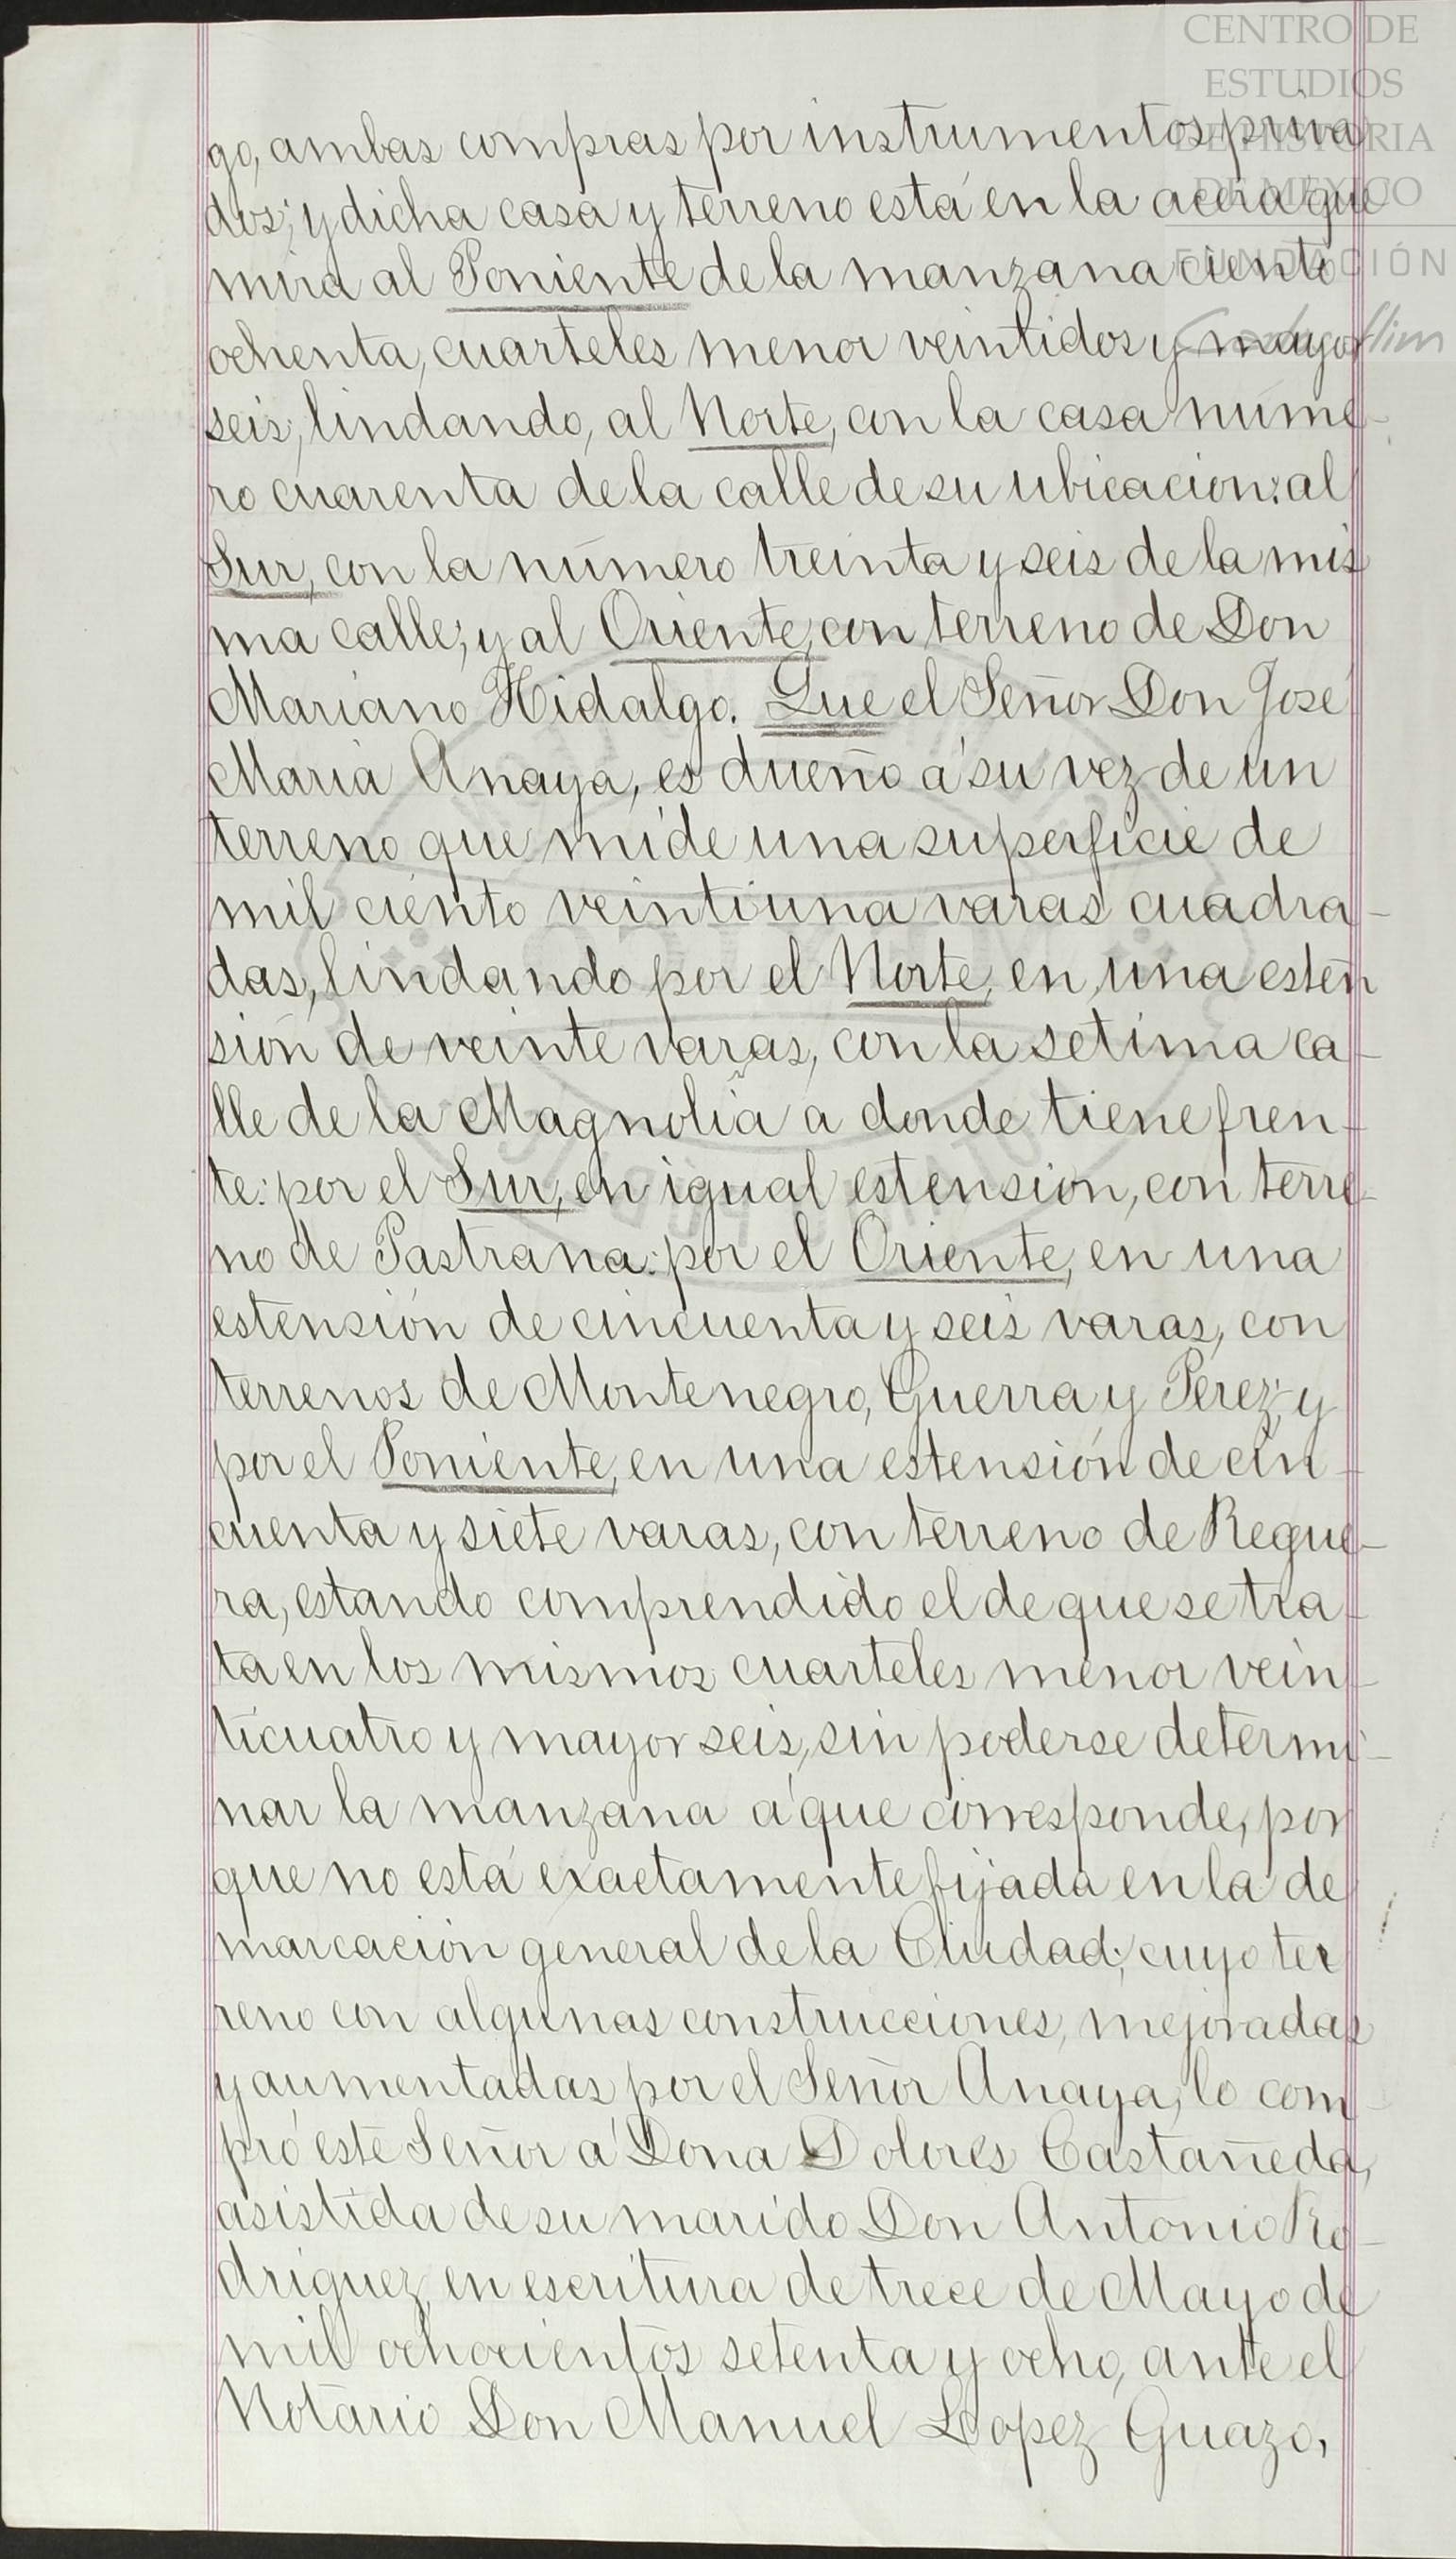 CENTRO DE
ESTUDIOS
DE HISTORIA
DE MEXICO
FUNDACIÓN
go, ambas compras por instrumentos priva
dos; y dicha casa y terreno está en la acera que
mira al Poniente de la manzana ciento
ochenta, cuarteles menor veintidos y mayor
seis, lindando, al Norte, con la casa núme-
ro cuarenta de la calle de su ubicacion: al
Sur, con la número treinta y seis de la mis
ma calle; y al Oriente, con terreno de Don
Mariano Hidalgo. Que el Señor Don José
Maria Anaya, es dueño á su vez de un
terreno que mide una superficie de
mil ciento veintiuna varas cuadra-
das, lindando por el Norte, en una esten
sión de veinte varas, con la setima ca-
lle de la Magnolia a donde tiene fren-
te: por el Sur, en igual estension, con terre-
no de Pastrana: por el Oriente, en una
estensión de cincuenta y seis varas, con
terrenos de Montenegro, Guerra y Perez; y
por el Poniente, en una estensión de cin-
cuenta y siete varas, con terreno de Regue-
ra, estando comprendido el de que se tra-
ta en los mismos cuarteles menor vein-
ticuatro y mayor seis, sin poderse determi-
nar la manzana á que corresponde, por
que no está exactamente fijada en la de
marcación general de la Ciudad; cuyo ter
reno con algunas construcciones, mejoradas
y aumentadas por el Señor Anaya, lo com-
pró este Señor á Dona Dolores Castañeda,
asistida de su marido Don Antonio Ro-
driguez, en escritura de trece de Mayo de
mil ochocientos setenta y ocho, ante el
Notario Don Manuel Lopez Guazo,